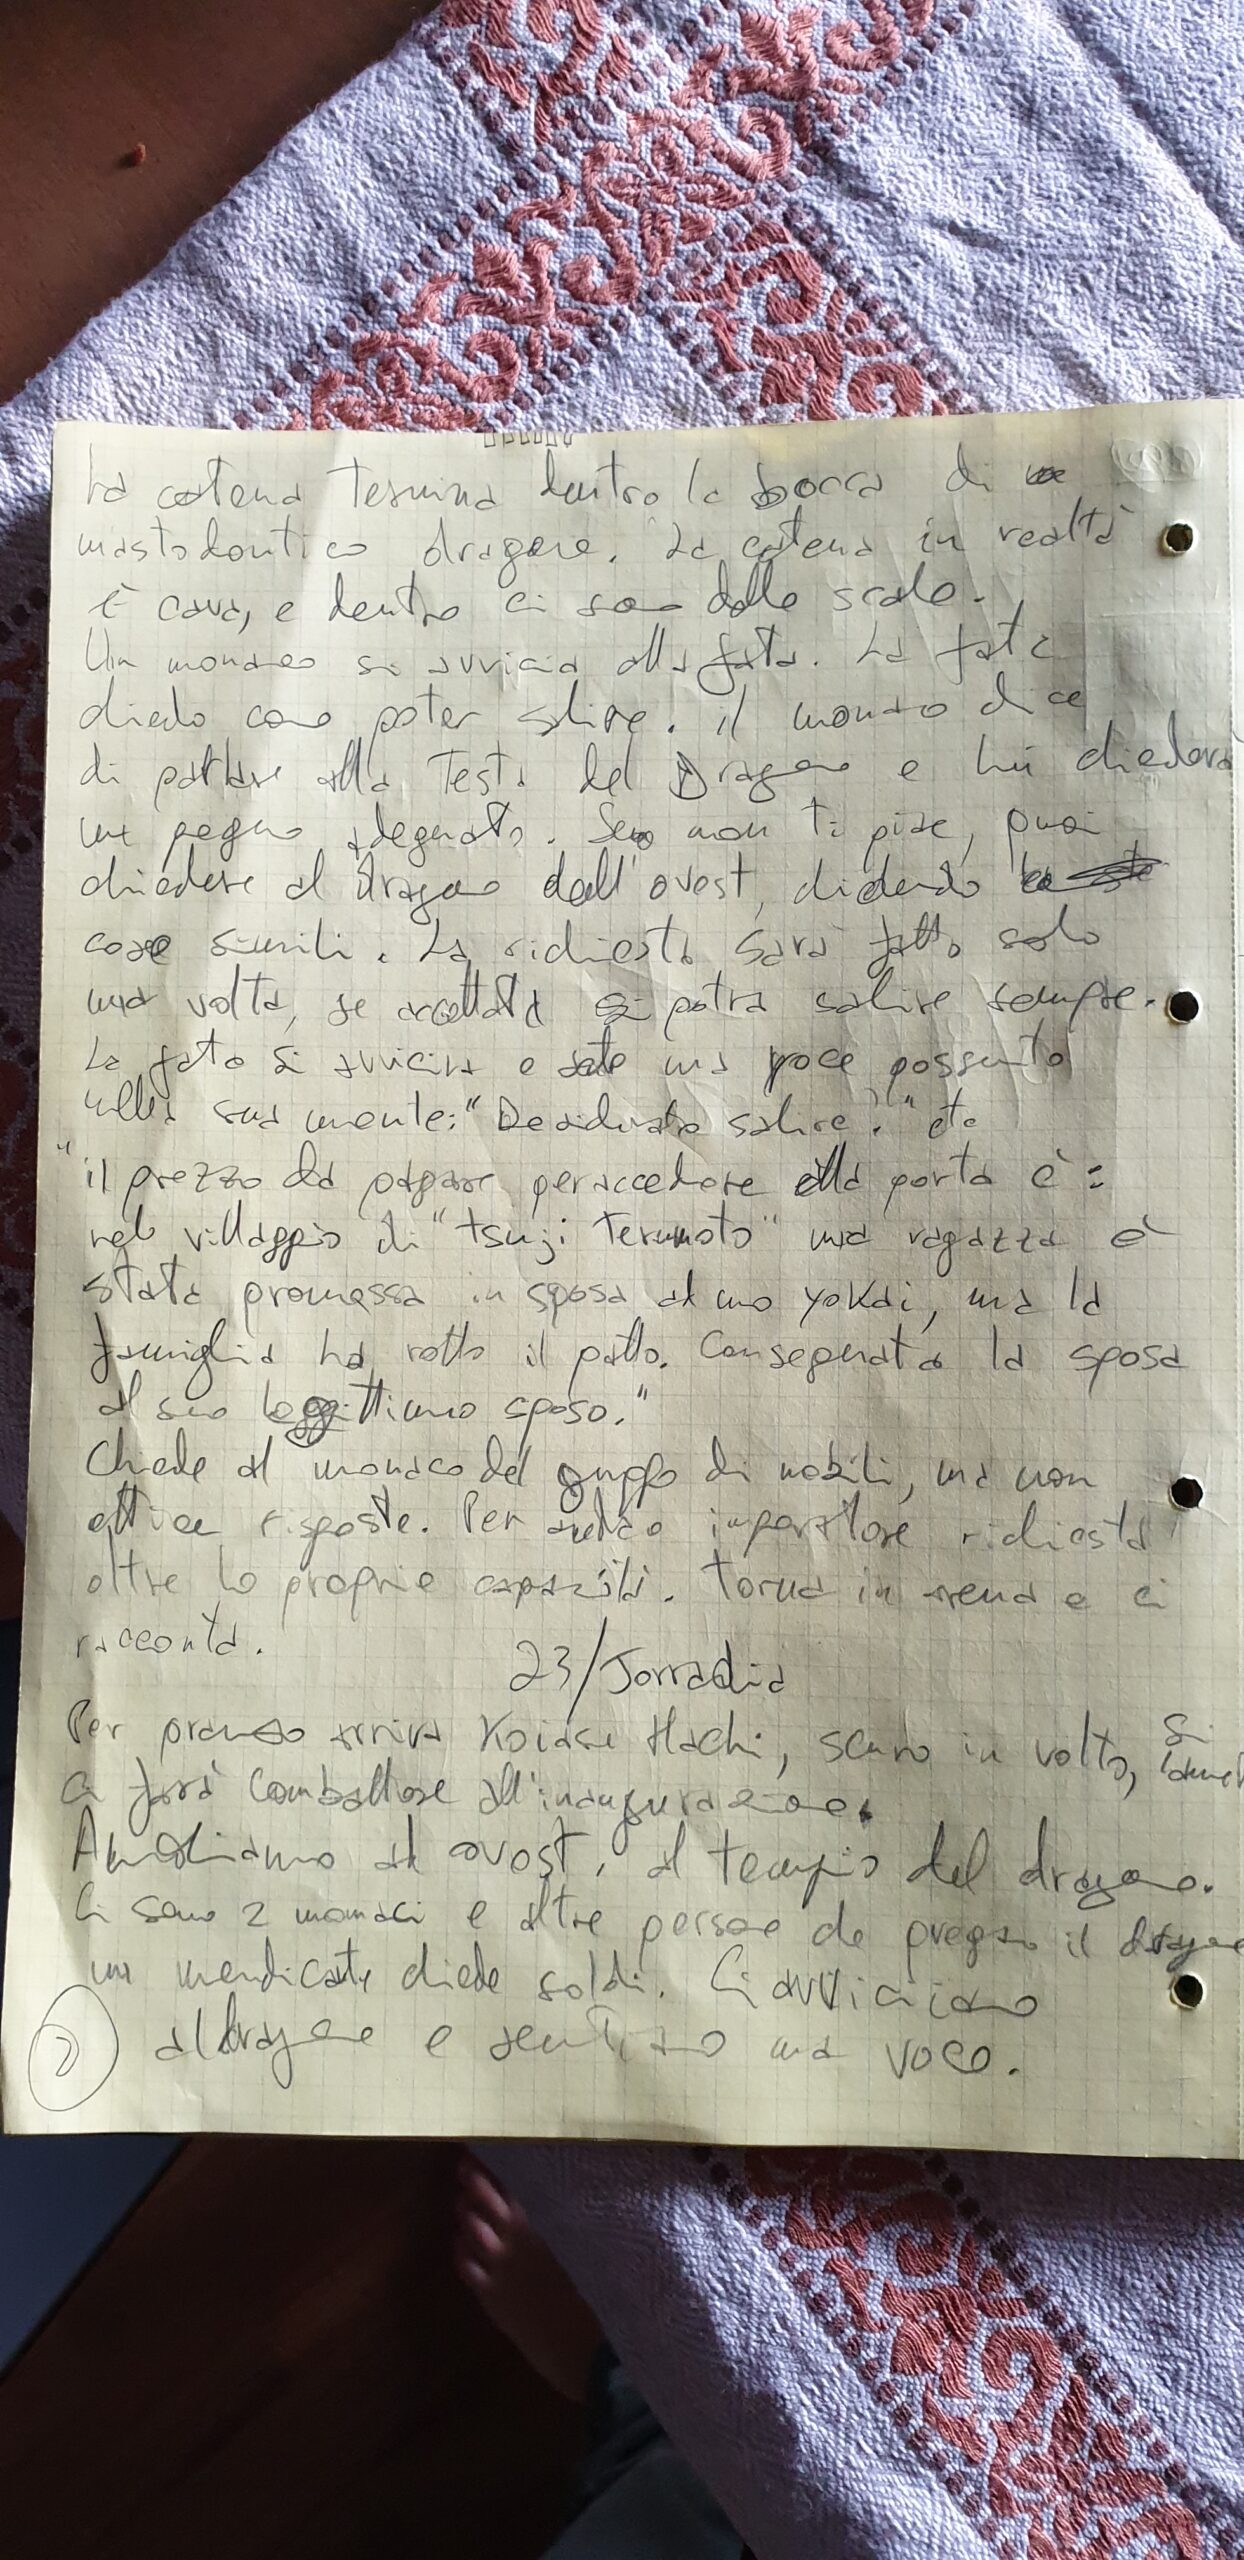 La catena termina dentro la bocca di
mastodontico dragone. La catena in realtà
è cava, e dentro ci sono delle scale.
Un monaco si avvicina alla fata. La fata
chiede come poter salire. il monaco dice
di parlare alla Testa del Dragone e lui chiederà
un pegno adeguato. Se non ti piace, puoi
chiedere al dragone dell'ovest, chiedendo
cose simili. La richiesta sarà fatta solo
una volta, se accettata si potrà salire sempre.
La fata si avvicina e sente una voce possente
nella sua mente: "Desiderate salire?" etc
"il prezzo da pagare per accedere alla porta è:
nel villaggio di "tsuji Terumoto" una ragazza è
stata promessa in sposa ad uno yokai, ma la
famiglia ha rotto il patto. Consegnate la sposa
al suo leggittimo sposo."
Chiede al monaco del gruppo di nobili, ma non
ottiene risposte. Per antico imperatore richiesta
oltre le proprie capacità. Torna in arena e ci
racconta.
23/Jorradia
Per pranzo arriva Koiase Hachi, scuro in volto, Si
ci farà combattere all'inaugurazione.
Andiamo ad ovest, al tempio del dragone.
Ci sono 2 monaci e altre persone che pregano il dragone
un mendicante chiede soldi. Ci avviciniamo
al dragone e sentiamo una voce.
2